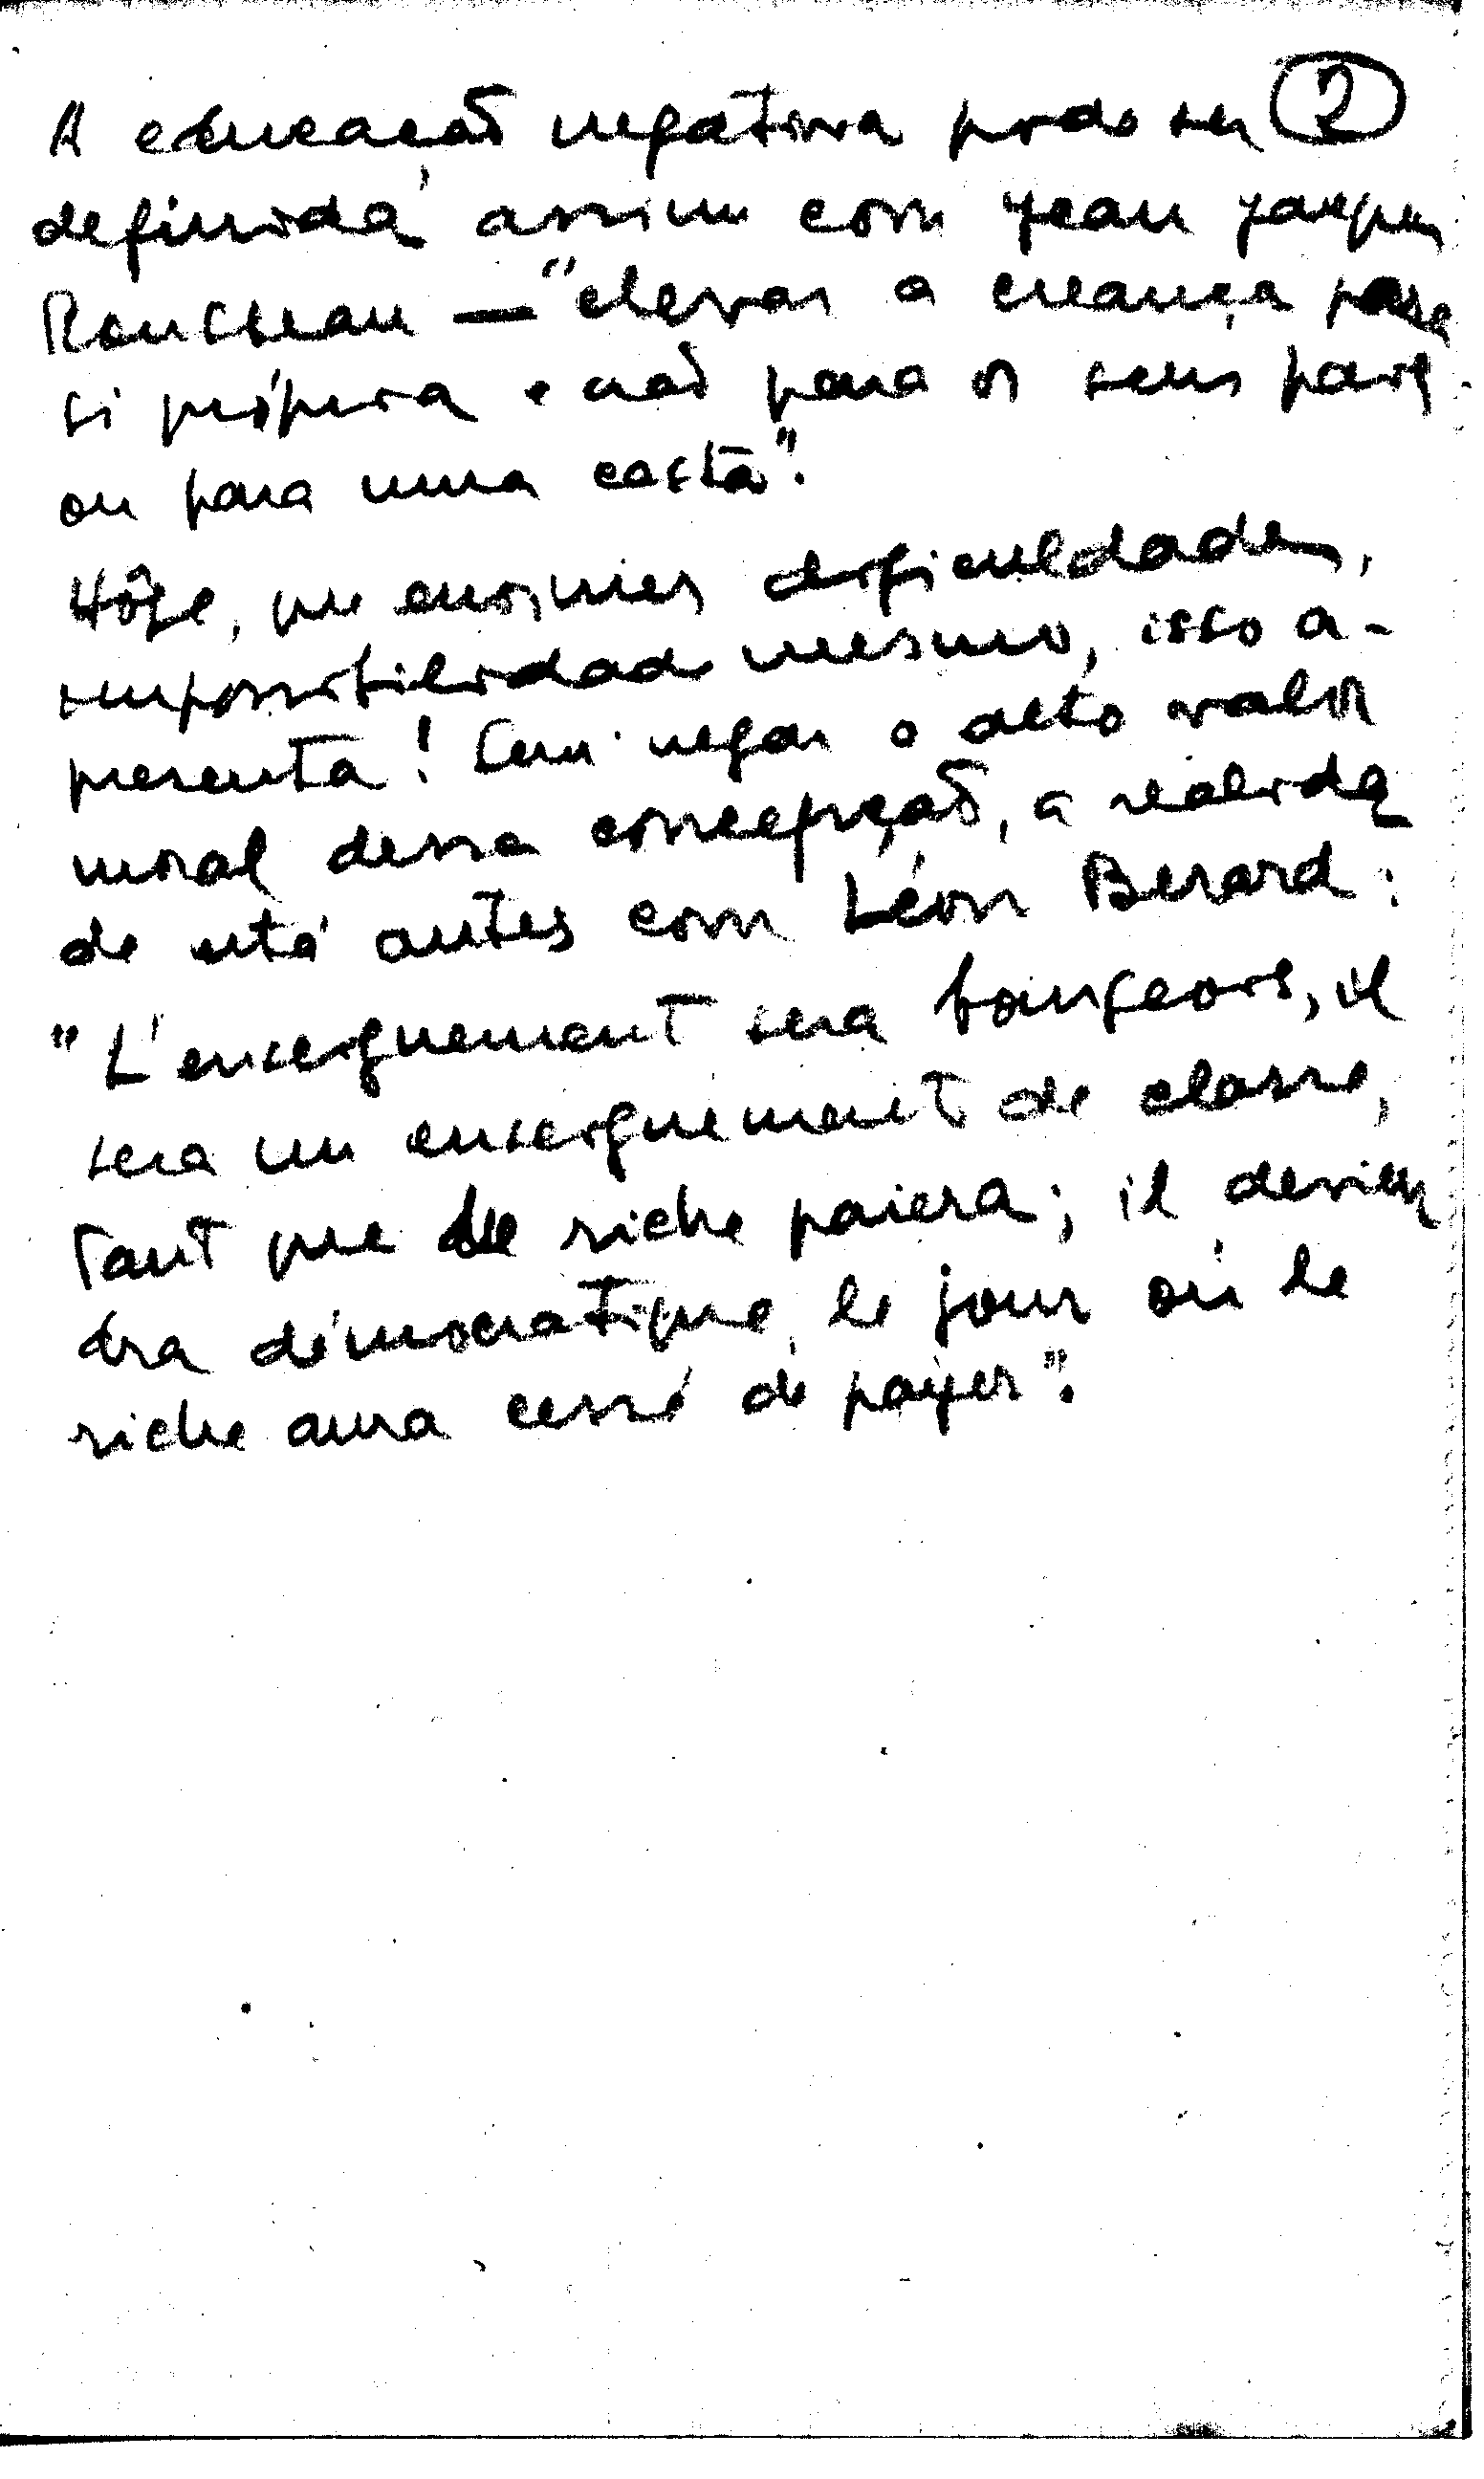 A educação negativa pode ser ②
definida assim com Jean Jacques
Rousseau — "elevar a creança para
si própria e não para os seus pais
ou para uma casta".
Hôje, que enormes dificuldades,
impossibilidade mesmo, isso a-
presenta! Sem negar o alto valor
moral dessa concepção, a realida
de está antes com Léon Berard:
"L'enseignement sera bourgeois, il
sera un enseignement de classe,
tant que le riche paiera; il devien
dra démocratique, le jour où le
riche aura cessé de payer".